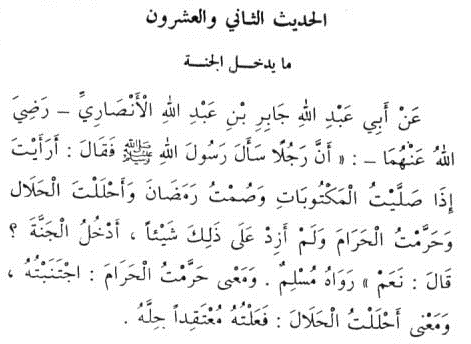 الحديث الثاني والعشرون
ما يدخل الجنة
عَنْ أَبِي عَبْدِ اللهِ جَابِرِ بْنِ عَبْدِ اللهِ الْأَنْصَارِيِّ – رَضِيَ
اللهُ عَنْهُمَا – : « أَنَّ رَجُلًا سَأَلَ رَسُولَ اللهِ ﷺ فَقَالَ : أَرَأَيْتَ
إِذَا صَلَّيْتُ الْمَكْتُوبَاتِ وَصُمْتُ رَمَضَانَ وَأَحْلَلْتُ الْحَلَالَ
وَحَرَّمْتُ الْحَرَامَ وَلَمْ أَزِدْ عَلَى ذَلِكَ شَيْئاً ، أَدْخُلُ الْجَنَّةَ ؟
قَالَ : نَعَمْ » رَوَاهُ مُسْلِمٌ . وَمَعْنَى حَرَّمْتُ الْحَرَامَ : اجْتَنَبْتُهُ ،
وَمَعْنَى أَحْلَلْتُ الْحَلَالَ : فَعَلْتُهُ مُعْتَقِداً حِلَّهُ .